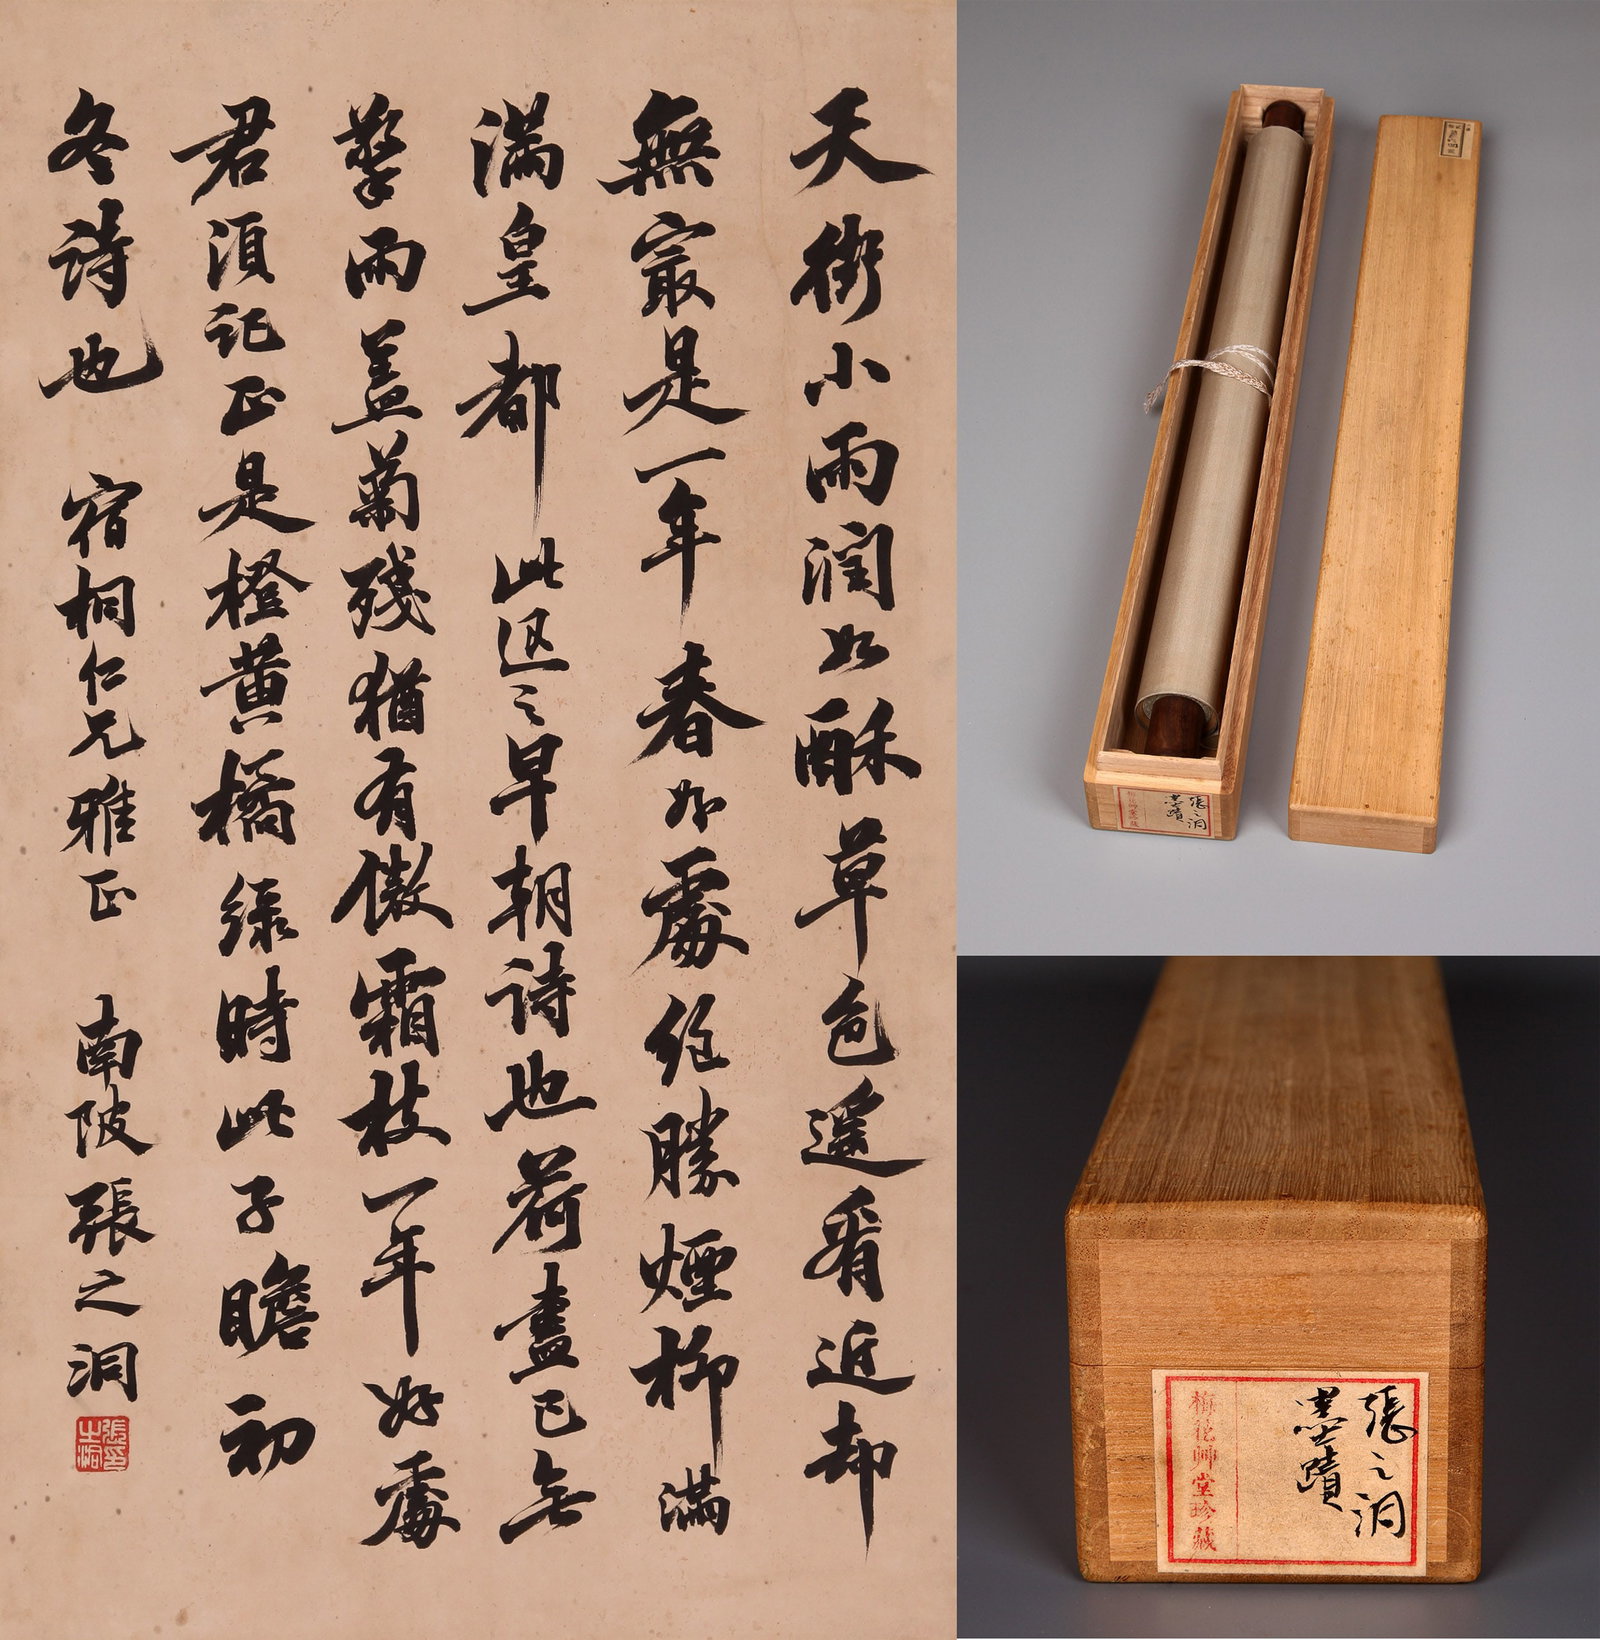 天街小雨潤如酥草色遙看近却
無最是一年春好處絕勝煙柳滿
滿皇都 此退之早朝詩也荷盡已無
擎雨蓋菊殘猶有傲霜枝一年好處
君須記正是橙黃橘綠時此子瞻初
冬詩也 宿桐仁兄雅正 南陂張之洞
張之洞
墨蹟
梅花艸堂珍藏
張之洞
墨蹟
梅花艸堂珍藏